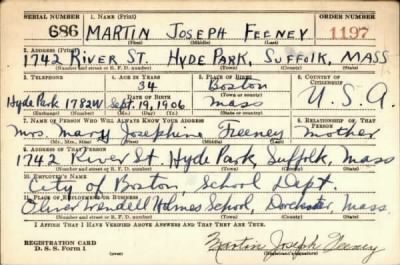 SERIAL NUMBER 1. NAME (Print) ORDER NUMBER
686 MARTIN JOSEPH FEENEY 1197
(First) (Middle) (Last)
2. ADDRESS (Print)
1742 RIVER ST. HYDE PARK, SUFFOLK, MASS
(Number and street or R. F. D. number) (Town) (County) (State)
3. TELEPHONE 4. AGE IN YEARS 5. PLACE OF BIRTH 6. COUNTRY OF CITIZENSHIP
34 Boston
DATE OF BIRTH (Town or county)
Hyde Park 1782W Sept. 19, 1906 Mass U.S.A.
(Exchange) (Number) (Mo.) (Day) (Yr.) (State or country)
7. NAME OF PERSON WHO WILL ALWAYS KNOW YOUR ADDRESS 8. RELATIONSHIP OF THAT PERSON
Mrs. Mary Josephine Feeney Mother
(Mr., Mrs., Miss) (First) (Middle) (Last)
9. ADDRESS OF THAT PERSON
1742 River St. Hyde Park, Suffolk, Mass
(Number and street or R. F. D. number) (Town) (County) (State)
10. EMPLOYER'S NAME
City of Boston, School Dept.
11. PLACE OF EMPLOYMENT OR BUSINESS
Oliver Wendell Holmes School, Dorchester, Mass.
(Number and street or R. F. D. number) (Town) (County) (State)
I AFFIRM THAT I HAVE VERIFIED ABOVE ANSWERS AND THAT THEY ARE TRUE.
REGISTRATION CARD
D. S. S. Form 1
Martin Joseph Feeney
(Registrant's signature)